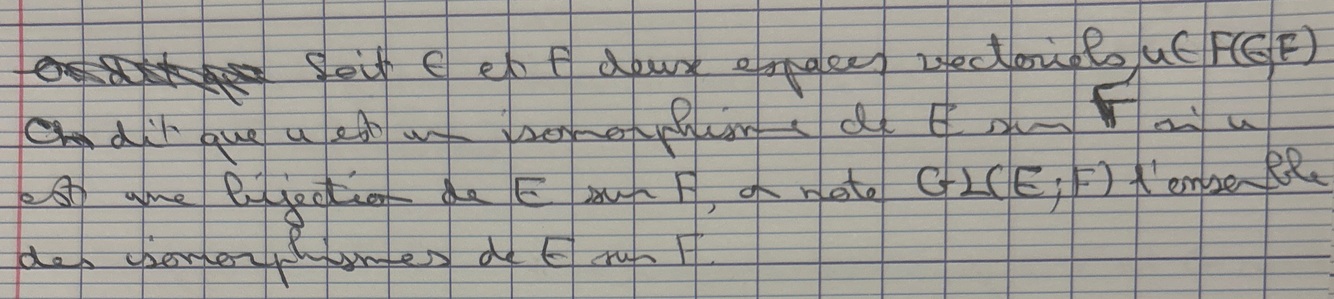 Soit E et F deux espaces vectoriels, u ∈ F(E,F)
On dit que u est un isomorphisme de E sur F si u
est une bijection de E sur F, on note GL(E;F) l'ensemble
des isomorphismes de E sur F.